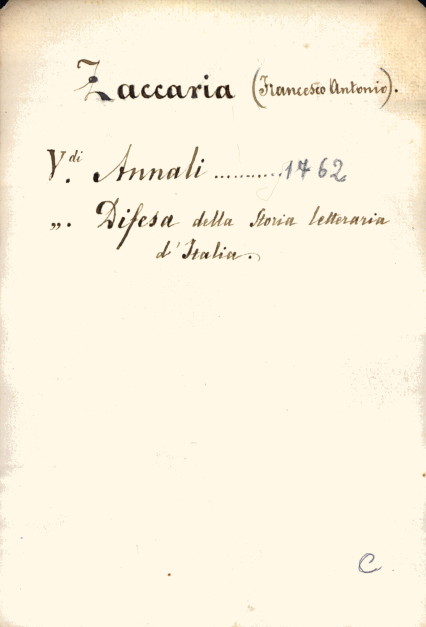 Zaccaria (Francesco Antonio).
V.di Annali ........... 1762
„. Difesa della Storia letteraria
d'Italia.
C